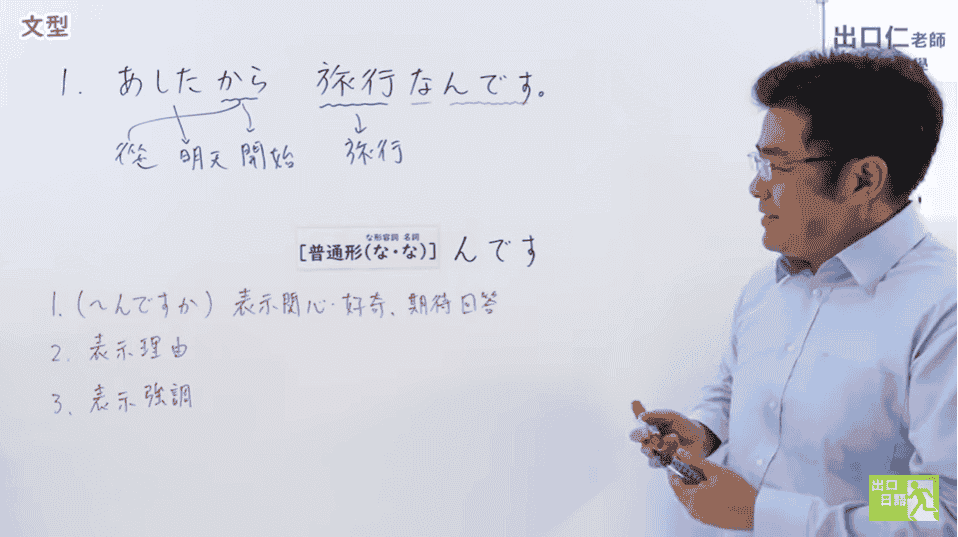 文型
出口仁老師
學
1. あしたから 旅行なんです。
從 明天 開始 旅行
な形容詞 名詞
[普通形(な・な)] んです
1.(~んですか) 表示関心・好奇、期待回答
2. 表示理由
3. 表示強調
出口
日語